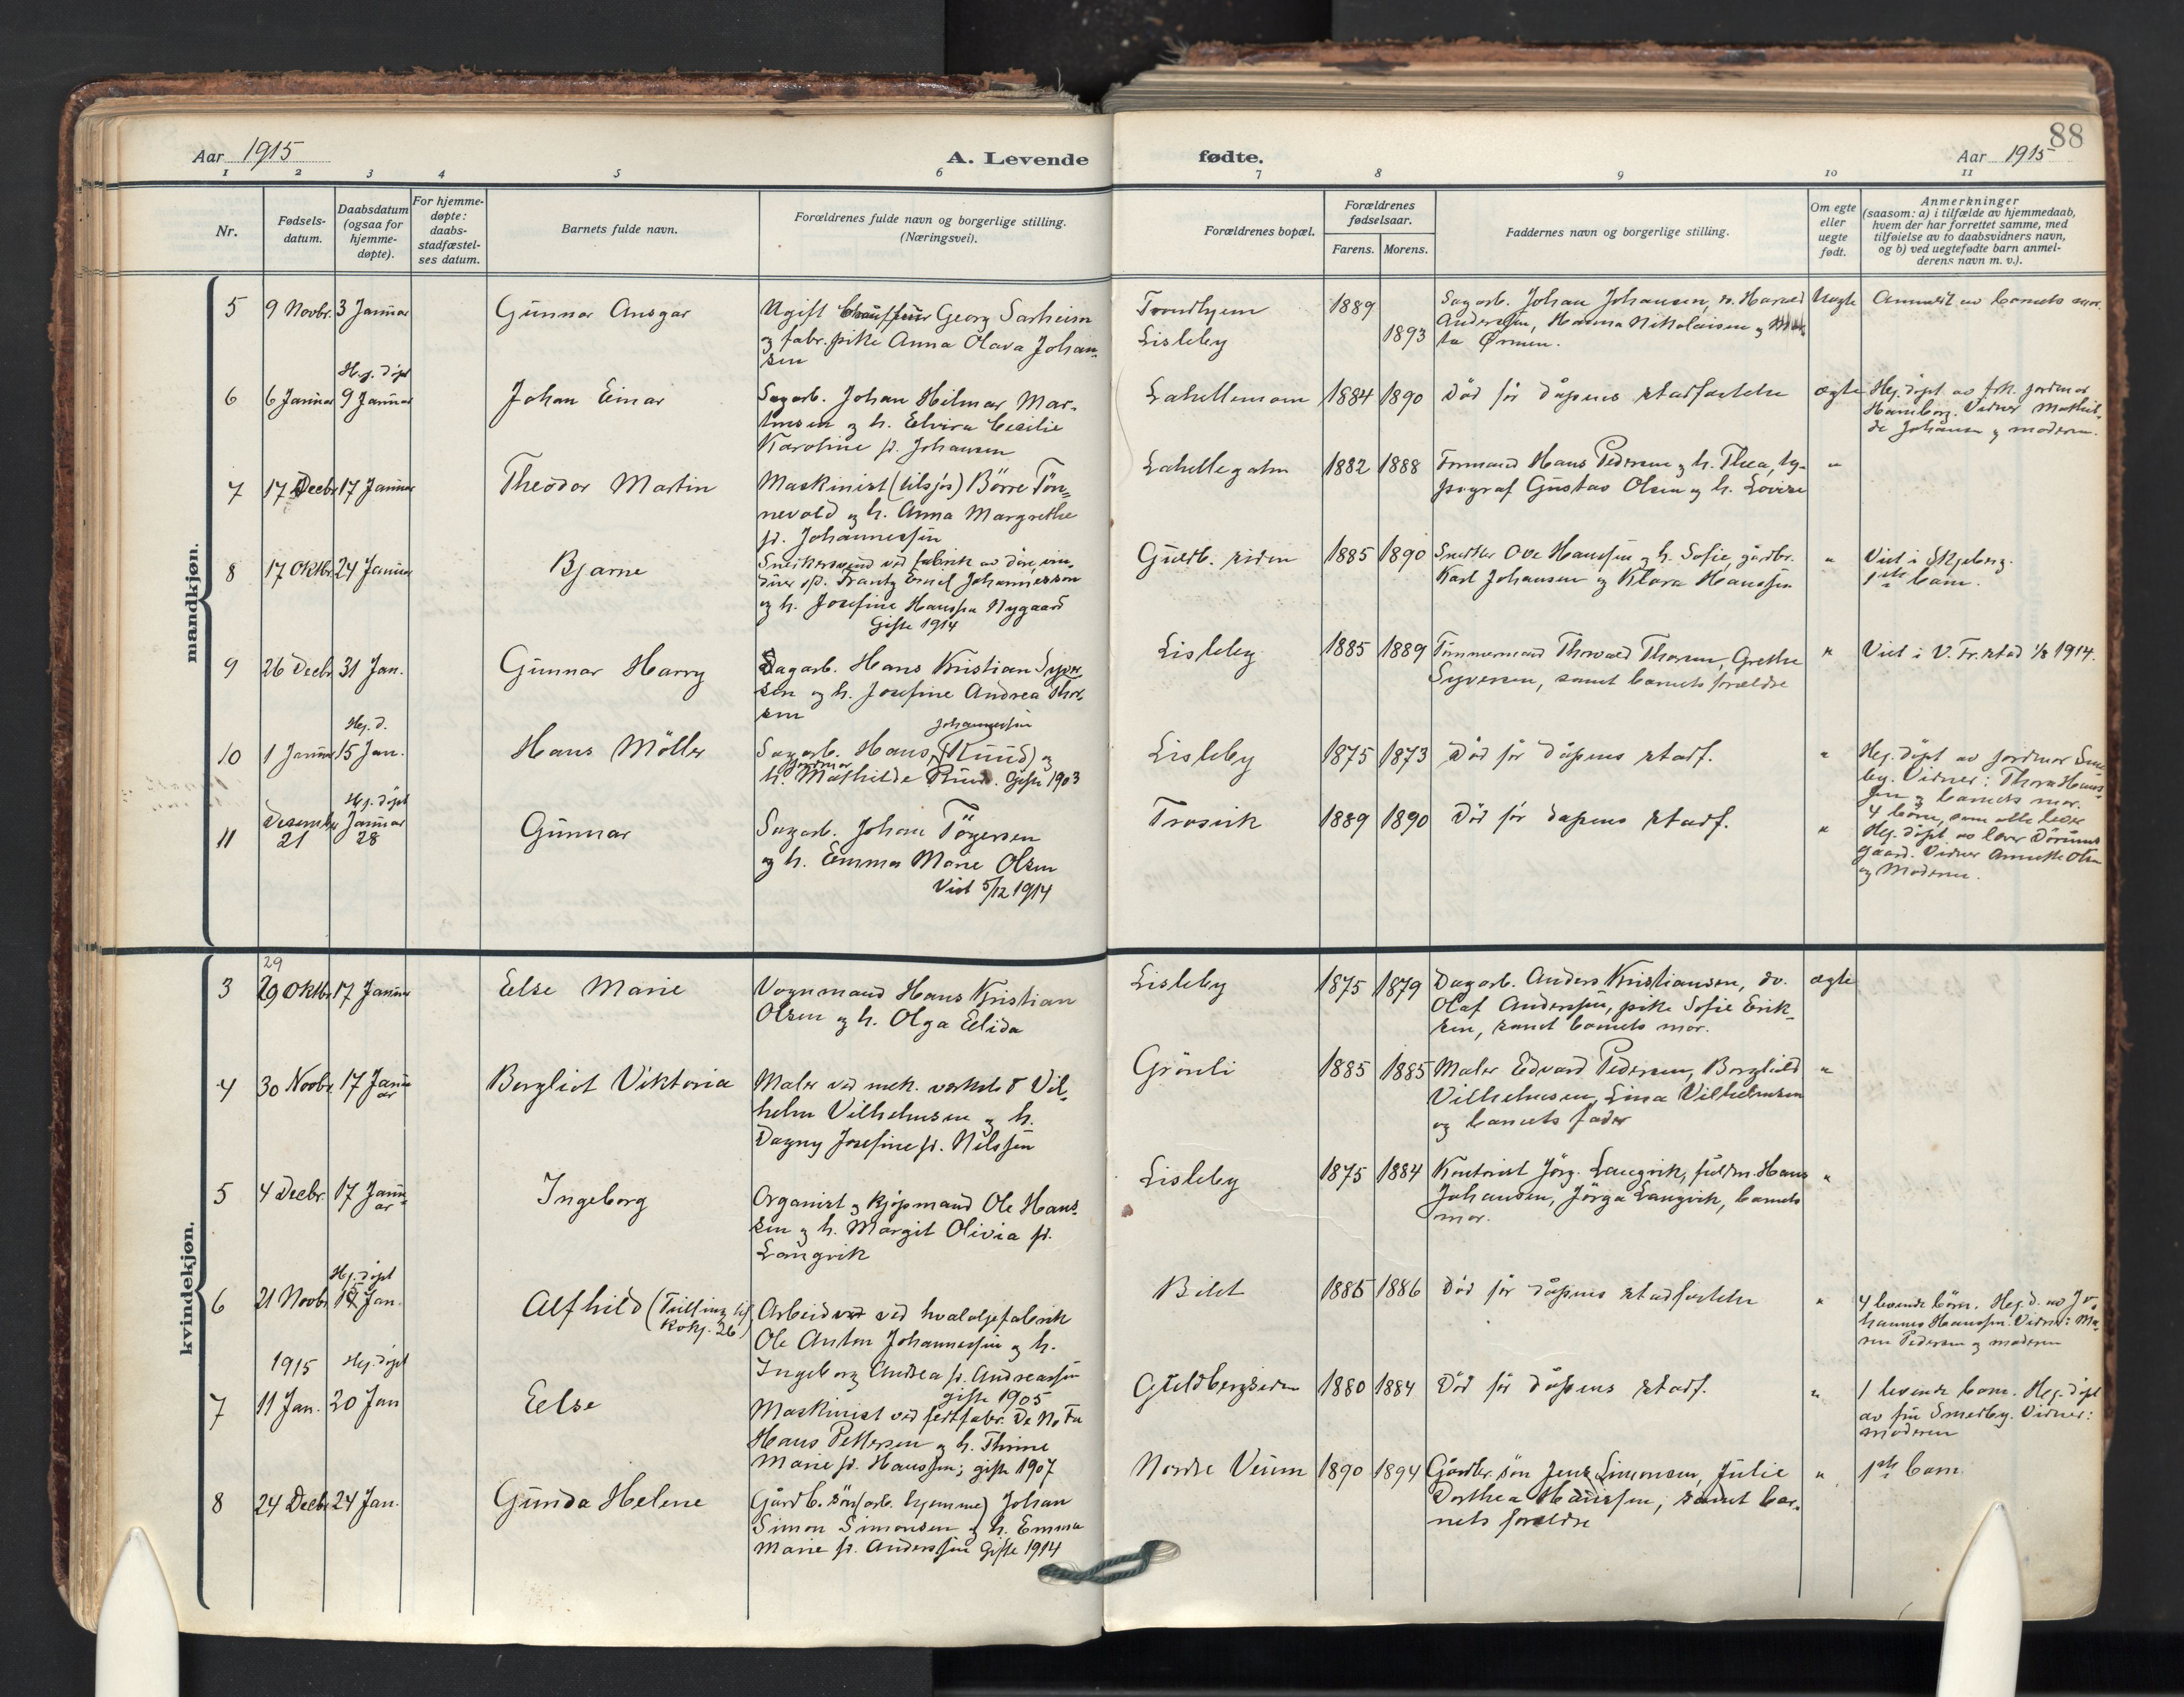 Aar 1915
A. Levende
fødte.
Aar 1915
88
1 2 3 4 5 6
7 8 9 10 11
Nr.
Fødsels-
datum.
Daabsdatum
(ogsaa for
hjemme-
døpte).
For hjemme-
døpte:
daabs-
stadfæstel-
ses datum.
Barnets fulde navn.
Forældrenes fulde navn og borgerlige stilling.
(Næringsvei).
Forældrenes bopæl.
Forældrenes
fødselsaar.
Farens. Morens.
Faddernes navn og borgerlige stilling.
Om egte
eller
uegte
født.
Anmerkninger
(saasom: a) i tilfælde av hjemmedaab,
hvem der har forrettet samme, med
tilføielse av to daabsvidners navn,
og b) ved uegtefødte barn anmel-
derens navn m. v.).
mandkjøn.
5 9 Novbr. 3 Januar
Gunnar Ansgar
Ugift Chauffeur Georg Sarheim
og fabr.pike Anna Olava Johan-
sen
Trondhjem
Lisleby
1889
1893
Sagarb. Johan Johansen, Harald
Anderssen, Hanna Nikolaisen og
Ørmen.
Uegte
Anmeldt av barnets mor.
6 6 Januar Hj. døpt 9 Januar
Johan Einar
Sagarb. Johan Hilmar Mar-
tinsen og h. Elvira Cecilie
Karoline f. Johansen
Lahellemoen
1884 1890
Død før dåpens stadfæstelse
ægte
Hj. døpt av frk. jordmor
Hamborg. Vidner Mathil-
de Johansen og moderen.
7 17 Decbr 17 Januar
Theodor Martin
Maskinist (tilsjøs) Börre Tön-
nevold og h. Anna Margrethe
f. Johannessen
Lahellegaten
1882 1888
Formand Hans Pedersen og h. Thea, ty-
pograf Gustav Olsen og h. Lovise
"
8 17 Oktbr. 24 Januar
Bjarne
Snekkersvend ved fabrik av døre, vin-
duer Frantz Emil Johannessen
og h. Josefine Hanssen Nygaard
Gifte 1914
Guldb. siden
1885 1890
Snedker Ove Hanssen og h. Sofie, gårdbr.
Karl Johansen og Klara Hanssen
"
Viet i Skjeberg.
1ste barn.
9 26 Decbr 31 Jan.
Gunnar Harry
Dagarb. Hans Kristian Syver
sen og h. Josefine Andrea Thor-
sen
Lisleby
1885 1889
Tömmermand Thorvald Thorsen, Grethe
Syversen, samt barnets forældre
"
Viet i V. Fr.stad 1/8 1914.
10 1 Januar Hj. d. 15 Jan.
Hans Möller
Johannessen
Sagarb. Hans (Ruud) og
h. jordmor Mathilde Ruud. Gifte 1903
Lisleby
1875 1873
Død før dåpens stadf.
"
Hj. døpt av jordmor Sme-
by. Vidner: Thora Hans-
sen og barnets mor.
4 børn, som alle lever
11 Desember 21 Hj. døpt Januar 28
Gunnar
Sagarb. Johan Törgersen
og h. Emma Marie Olsen
Viet 5/12 1914
Trosvik
1889 1890
Død før dåpens stadf.
"
Hj. døpt av lærer Dörums-
gaard. Vidner Annette Olsen
og Moderen.
kvindekjøn.
3 29 29 Oktbr 17 Januar
Else Marie
Vognmand Hans Kristian
Olsen og h. Olga Elida
Lisleby
1875 1879
Dagarb. Anders Kristiansen, do.
Olaf Anderssen, pike Sofie Erik-
sen, samt barnets mor.
ægte
4 30 Novbr. 17 Janu
ar
Bergliot Viktoria
Maler ved mek. verksted Vil-
helm Vilhelmsen og h.
Dagny Josefine f. Nilssen
Grönli
1885 1885
Maler Edvard Pedersen, Borghild
Vilhelmsen, Lina Vilhelmsen
og barnets fader
"
5 4 Decbr. 17 Janu-
ar
Ingeborg
Organist og kjøpmand Ole Hans-
sen og h. Margit Olivia f.
Langvik
Lisleby
1875 1884
Kontorist Jörg. Langvik, fuldm. Hans
Johansen, Jörga Langvik, barnets
mor.
"
6 21 Novbr Hj. døpt Jan.
Alfhild (Tvilling
Arbeider ved hvaloljefabrik
Ole Anton Johannessen og h.
Ingeborg Andrea f. Andreassen
gifte 1905
Bilet
1885 1886
Død før dåpens stadfæstelse
"
4 levende børn. Hj. d. av Jo-
hannes Hanssen. Vidner: Ma-
ren Pedersen og moderen
7 1915 11 Jan. Hj. døpt 20 Jan
Else
Maskinist ved fedtfabr. De No Fa
Hans Pettersen og h. Thrine
Marie f. Hanssen; gifte 1907
Guldbergsiden
1880 1884
Død før dåpens stadf.
"
1 levende barn. Hj. døpt
av fru Smedby. Vidner:
moderen
8 24 Decbr 24 Jan.
Gunda Helene
Gårdb. søn (arb. hjemme) Johan
Simon Simonsen og h. Emma
Marie f. Anderssen Gifte 1914
Nordre Veum
1890 1894
Gårdbr. søn Jens Simonsen, Julie
Dorthea Hanssen, samt bar-
nets forældre
"
1ste barn